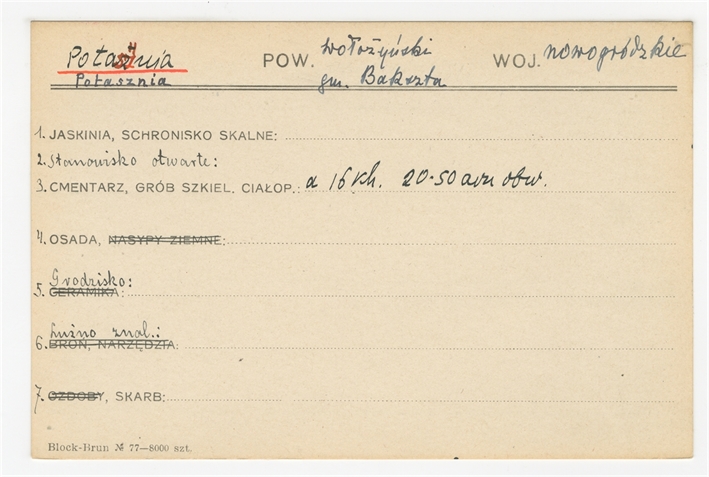 Potażnja POW. wołożyński WOJ. nowogródzkie
Potasznia gm. Bakszta
1. JASKINIA, SCHRONISKO SKALNE:
2. Stanowisko otwarte:
3. CMENTARZ, GRÓB SZKIEL. CIAŁOP.: a 16 kh. 20-50 obw.
4. OSADA, NASYPY ZIEMNE:
Grodzisko:
5. CERAMIKA:
Luźno znal.:
6. BROŃ, NARZĘDZIA:
7. OZDOBY, SKARB:
Block-Brun № 77—8000 szt.